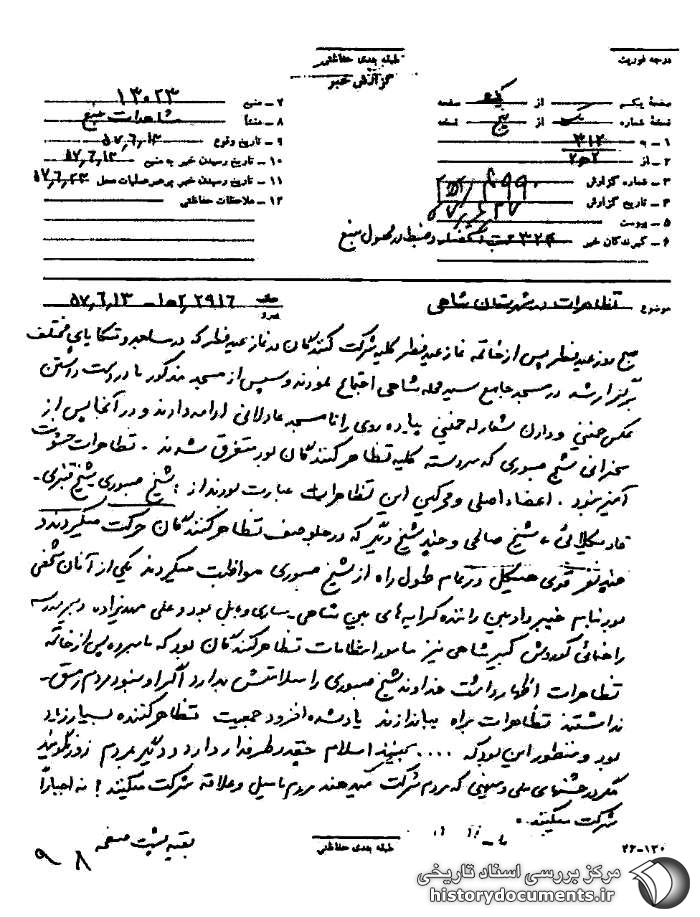 درجه فوریت
طبقه بندی حفاظتی
گزارش خبر
صفحه یکم از یک صفحه
نسخه شماره یک از پنج نسخه
۱ - به ۳۱۲
۲ - از ۲ ه‍ ۲
۳ - شماره گزارش
۴ - تاریخ گزارش
۵ - پیوست
۶ - گیرندگان خبر
۷ - منبع ۱۳۰۲۳
۸ - منشأ مشاهدات منبع
۹ - تاریخ وقوع ۵۷٫۶٫۱۳
۱۰ - تاریخ رسیدن خبر به منبع ۵۷٫۶٫۱۳
۱۱ - تاریخ رسیدن خبر به رهبر عملیات محل ۵۷٫۶٫۲۳
۱۲ - ملاحظات حفاظتی
موضوع تظاهرات در شهرستان شاهی
عطف پیرو ۲۹۱۶ / ۲ ه‍ ۱ - ۵۷٫۶٫۱۳
صبح روز عید فطر پس از خاتمه نماز عید فطر کلیه شرکت کنندگان در نماز عید فطر که در مساجد و تکایای مختلف
برگزار شد در مسجد جامع سید محله شاهی اجتماع نمودند و سپس از مسجد مذکور با در دست داشتن
عکس خمینی و دادن شعار له خمینی پیاده روی را تا مسجد عادلانی ادامه دادند و در آنجا پس از
سخنرانی شیخ صبوری که سردسته کلیه تظاهر کنندگان بود متفرق شدند . تظاهرات خشونت
آمیز نبود . اعضاء اصلی و محرکین این تظاهرات عبارت بودند از : شیخ صبوری شیخ قنبری -
شیخ صالحی و چند شیخ دیگر که در جلو صف تظاهر کنندگان حرکت میکردند و
چند نفر قوی هیکل در تمام طول راه از شیخ صبوری مواظبت میکردند یکی از آنان شخصی
بود بنام خیرداد مین راننده کرایه های بین شاهی - ساری و بابل بود و علی مهدیزاده دبیر مدرسه
راهنمائی کوروش کبیر شاهی نیز مامور انتظامات تظاهر کنندگان بود که نامبرده پس از خاتمه
تظاهرات اظهار داشت خداوند شیخ صبوری را سلامتش بدارد اگر او نبود مردم رمق -
نداشتند تظاهرات براه بیاندازند یادشده افزود جمعیت تظاهر کننده بسیار زیاد
بود و منظور این بود که .... ببینند اسلام چقدر طرفدار دارد و دیگر بمردم زور نگویند
مگر در جشنهای ملی و میهنی که مردم شرکت میدهند مردم با میل و علاقه شرکت میکنند ! نه اجباراً
شرکت میکنند .
بقیه پشت صفحه
طبقه بندی حفاظتی
۲۶-۱۲۰
۹ ۸
مرکز بررسی اسناد تاریخی
historydocuments.ir